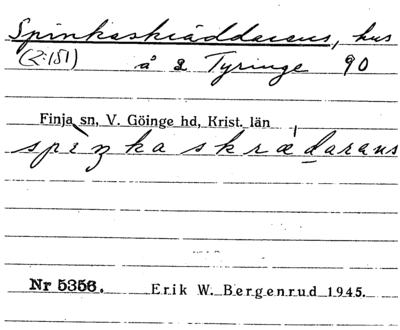 Spinkaskräddarens, hus
(2:151) å a Tyringe 90
Finja sn, V. Göinge hd, Krist. län
spìŋkaskrædarans
Nr 5356. Erik W. Bergenrud 1945.